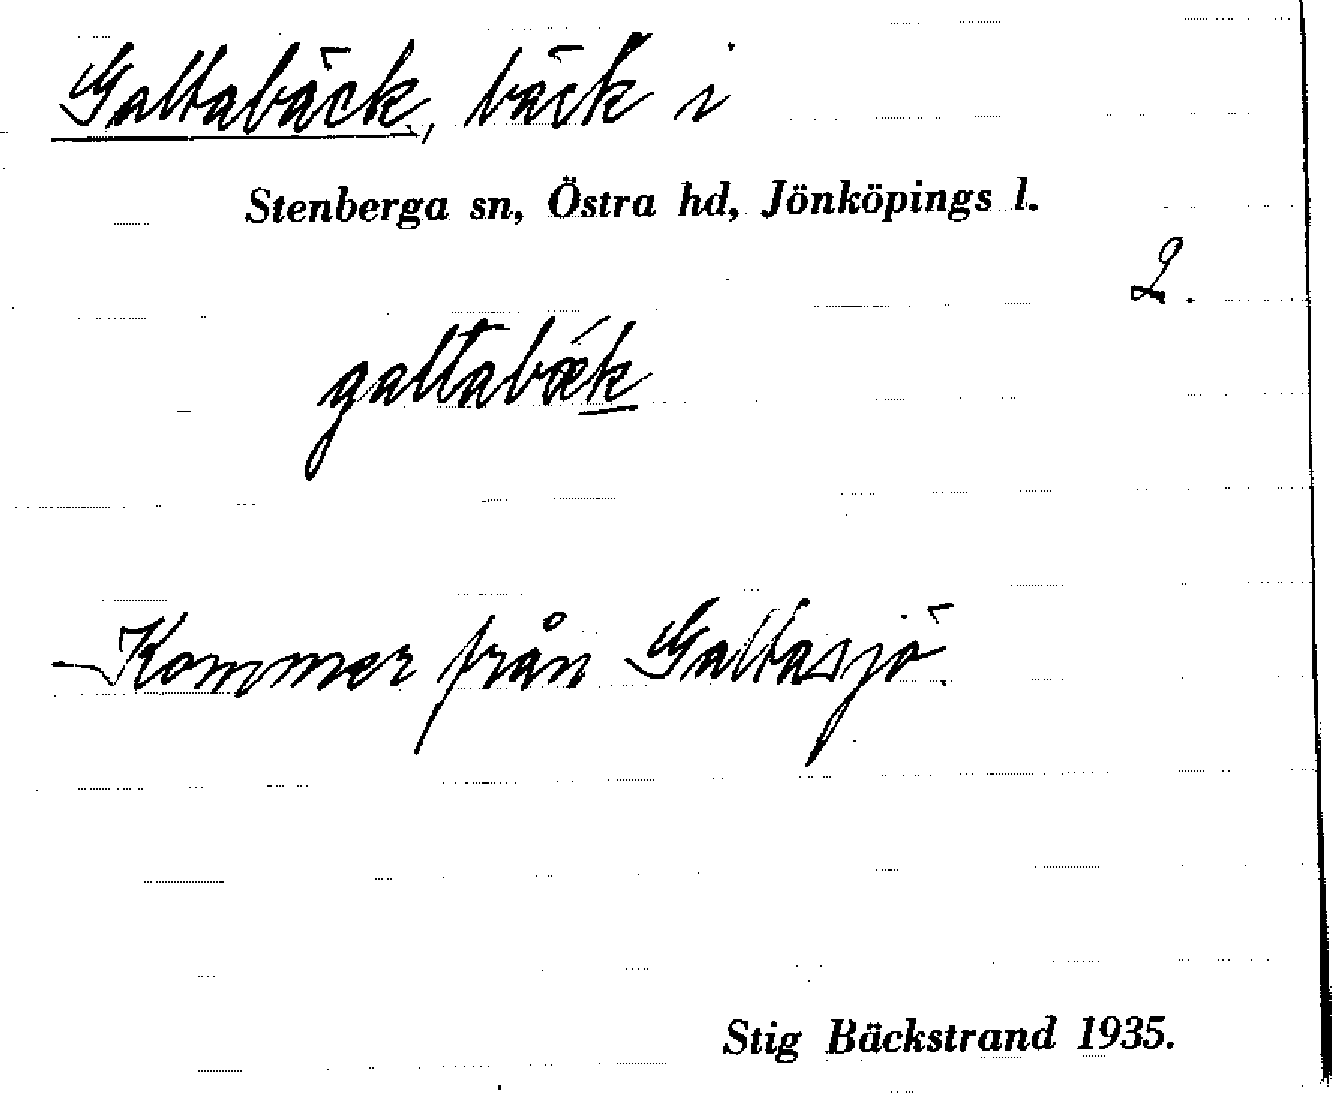 Galtabäck, bäck i
Stenberga sn, Östra hd, Jönköpings l.
2.
galtabæ´k
Kommer från Galtasjö.
Stig Bäckstrand 1935.